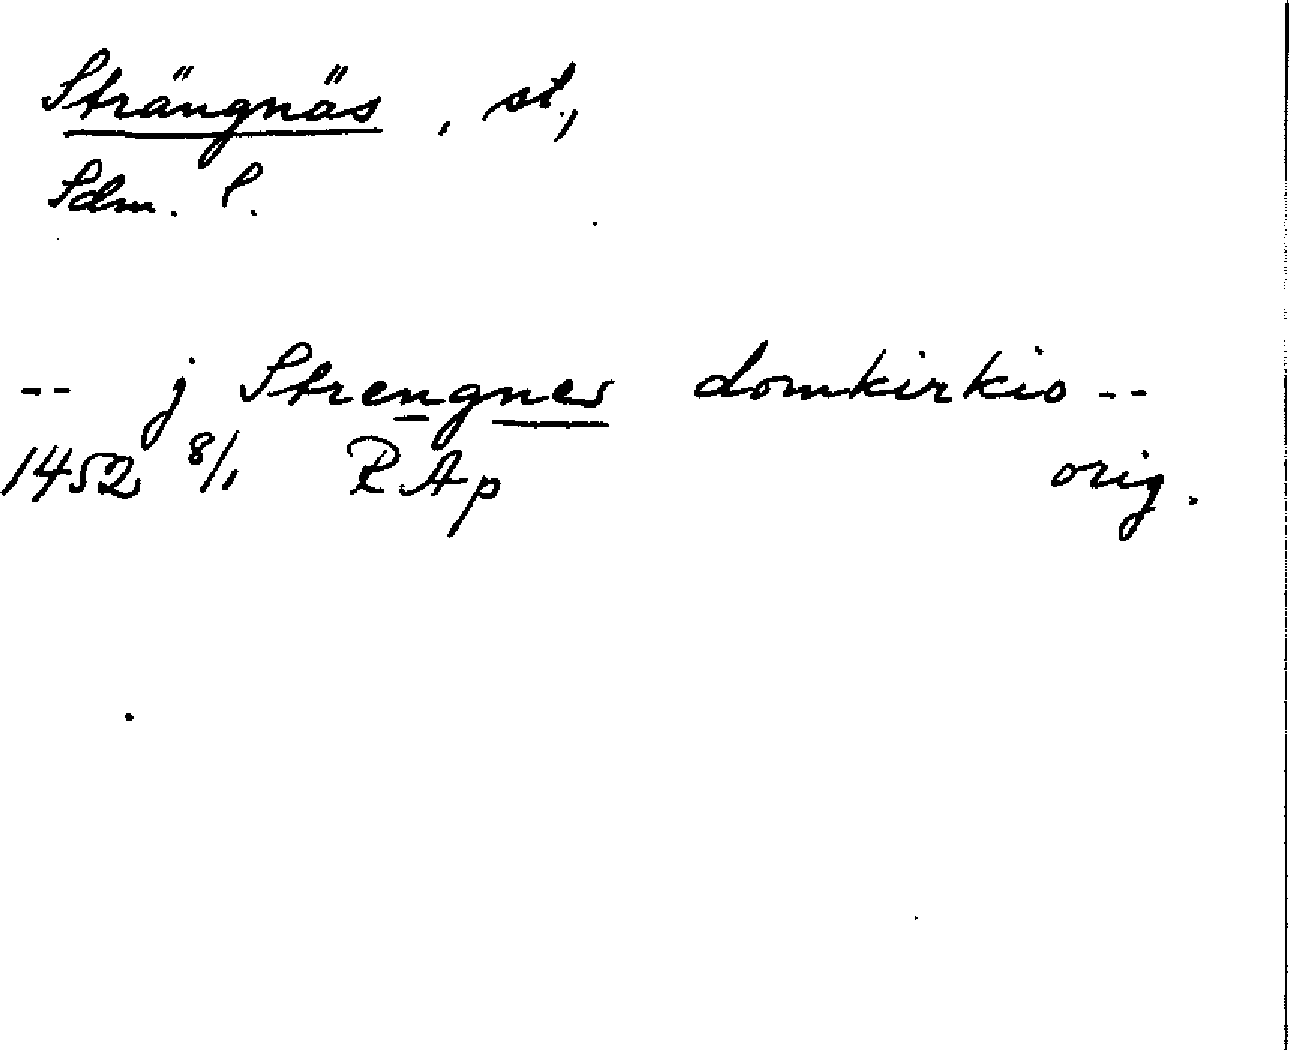 Strängnäs, st.,
Sdm. l.
-- j Strengnes domkirkio --
1452 8/1 RAp orig.